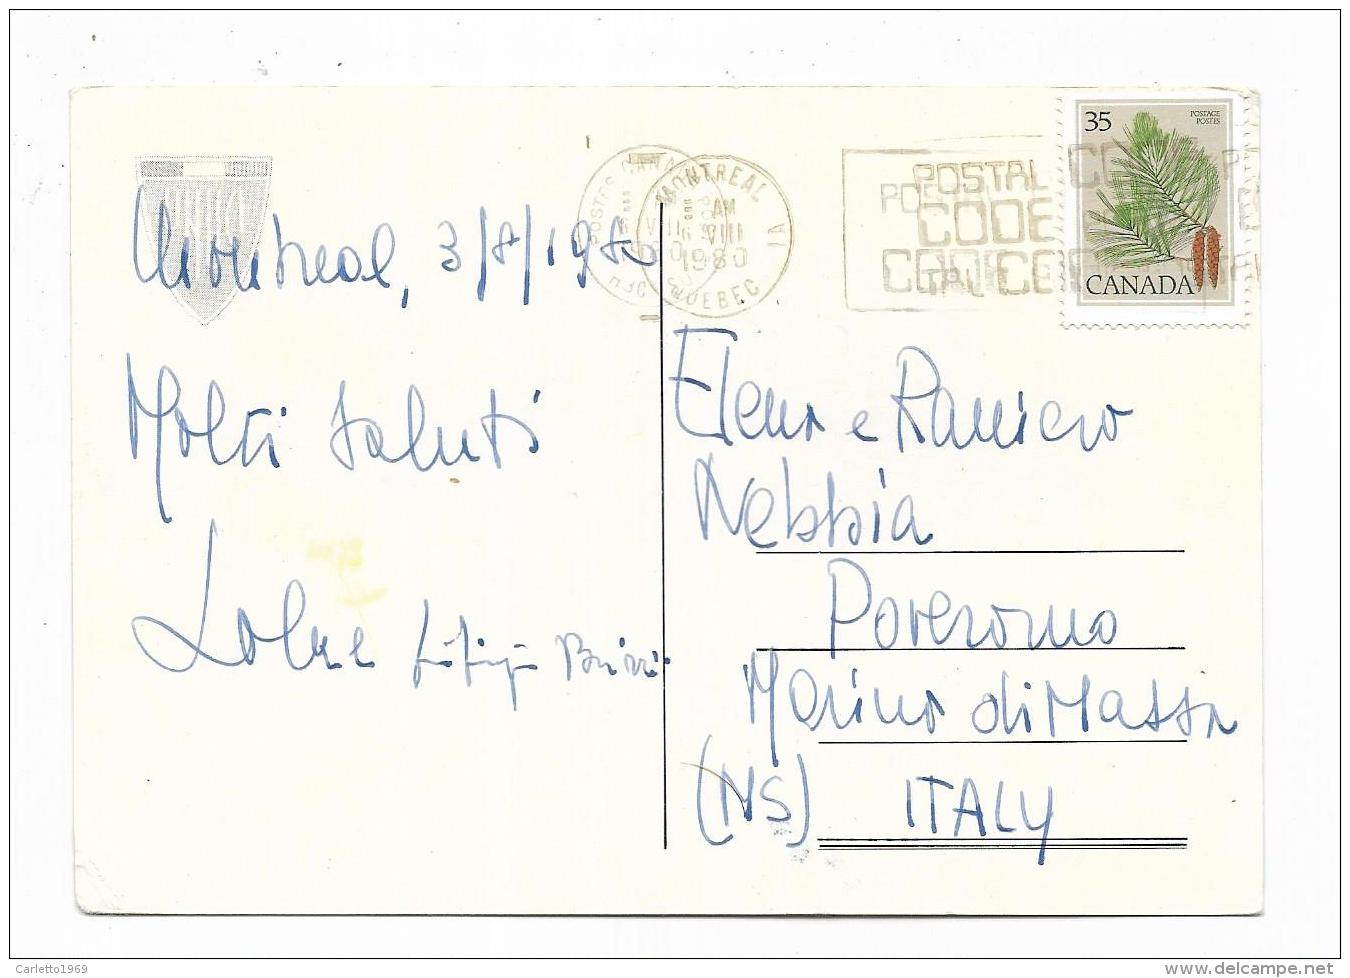 Montreal, 3/8/1980
Molti saluti
POSTES CAN
MONTREAL
AM
VIII
1980
QUEBEC
1A
POSTAL
CODE
35
POSTAGE
POSTES
CANADA
Elena e Ramiero
Nebbia
Poveromo
Marina di Massa
(MS) ITALY
Carletto1969
delcampe.net